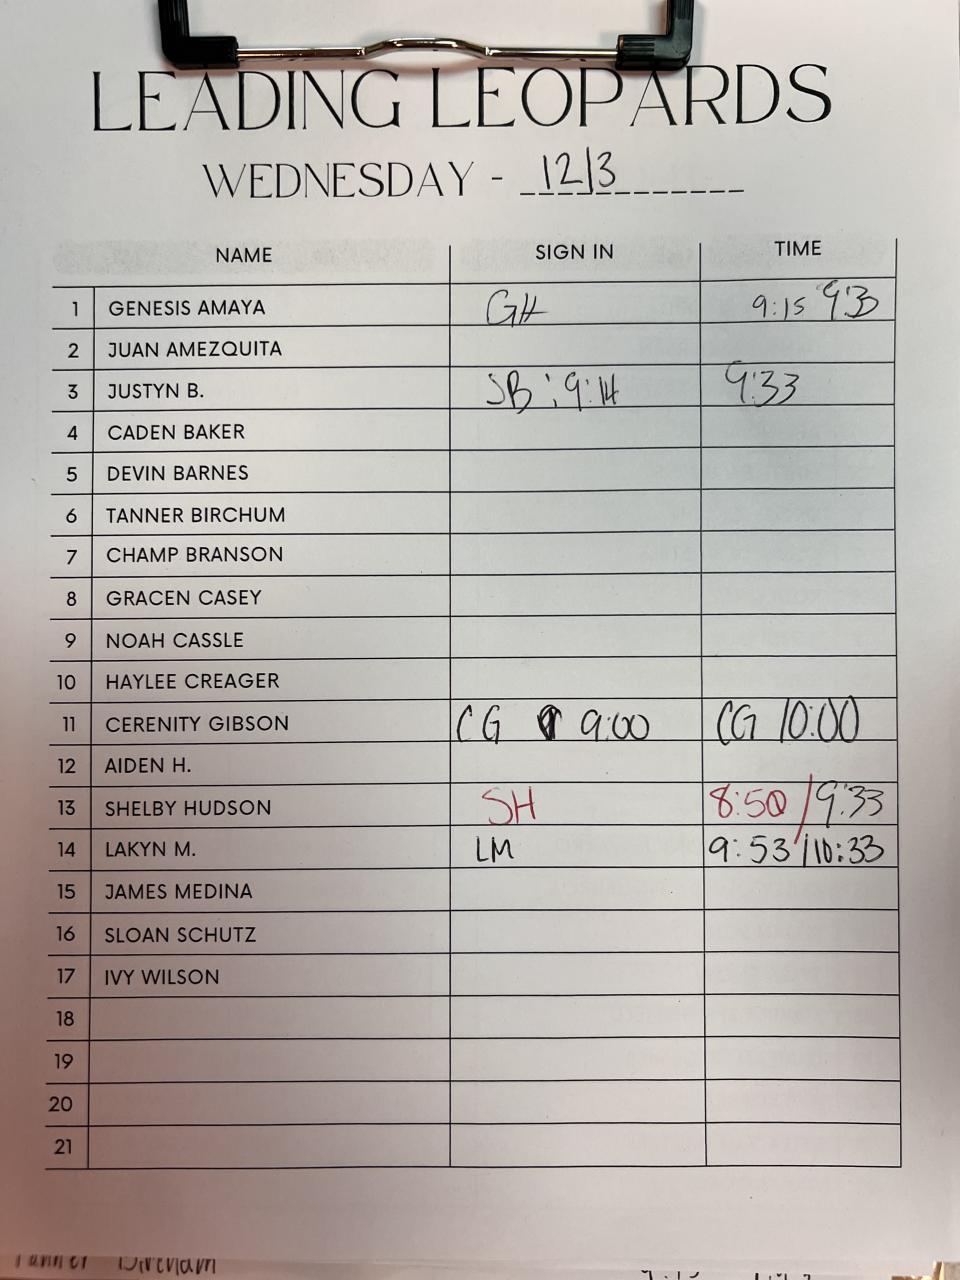 LEADING LEOPARDS
WEDNESDAY - 12/3
NAME SIGN IN TIME
1 GENESIS AMAYA GA 9:15 9:33
2 JUAN AMEZQUITA
3 JUSTYN B. JB : 9:14 9:33
4 CADEN BAKER
5 DEVIN BARNES
6 TANNER BIRCHUM
7 CHAMP BRANSON
8 GRACEN CASEY
9 NOAH CASSLE
10 HAYLEE CREAGER
11 CERENITY GIBSON CG 9:00 CG 10:00
12 AIDEN H.
13 SHELBY HUDSON SH 8:50 / 9:33
14 LAKYN M. LM 9:53 / 10:33
15 JAMES MEDINA
16 SLOAN SCHUTZ
17 IVY WILSON
18
19
20
21
Tanner Birchum